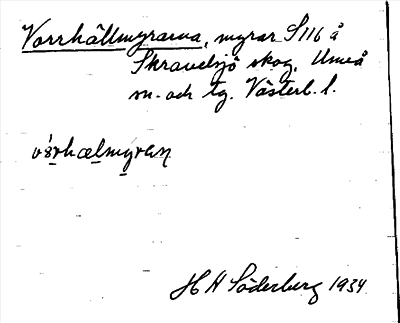 Vorrhällmyrarna, myrar S116 å
Skravelsjö skog, Umeå
sn. och tg. Västerb. l.
H A Söderberg 1934